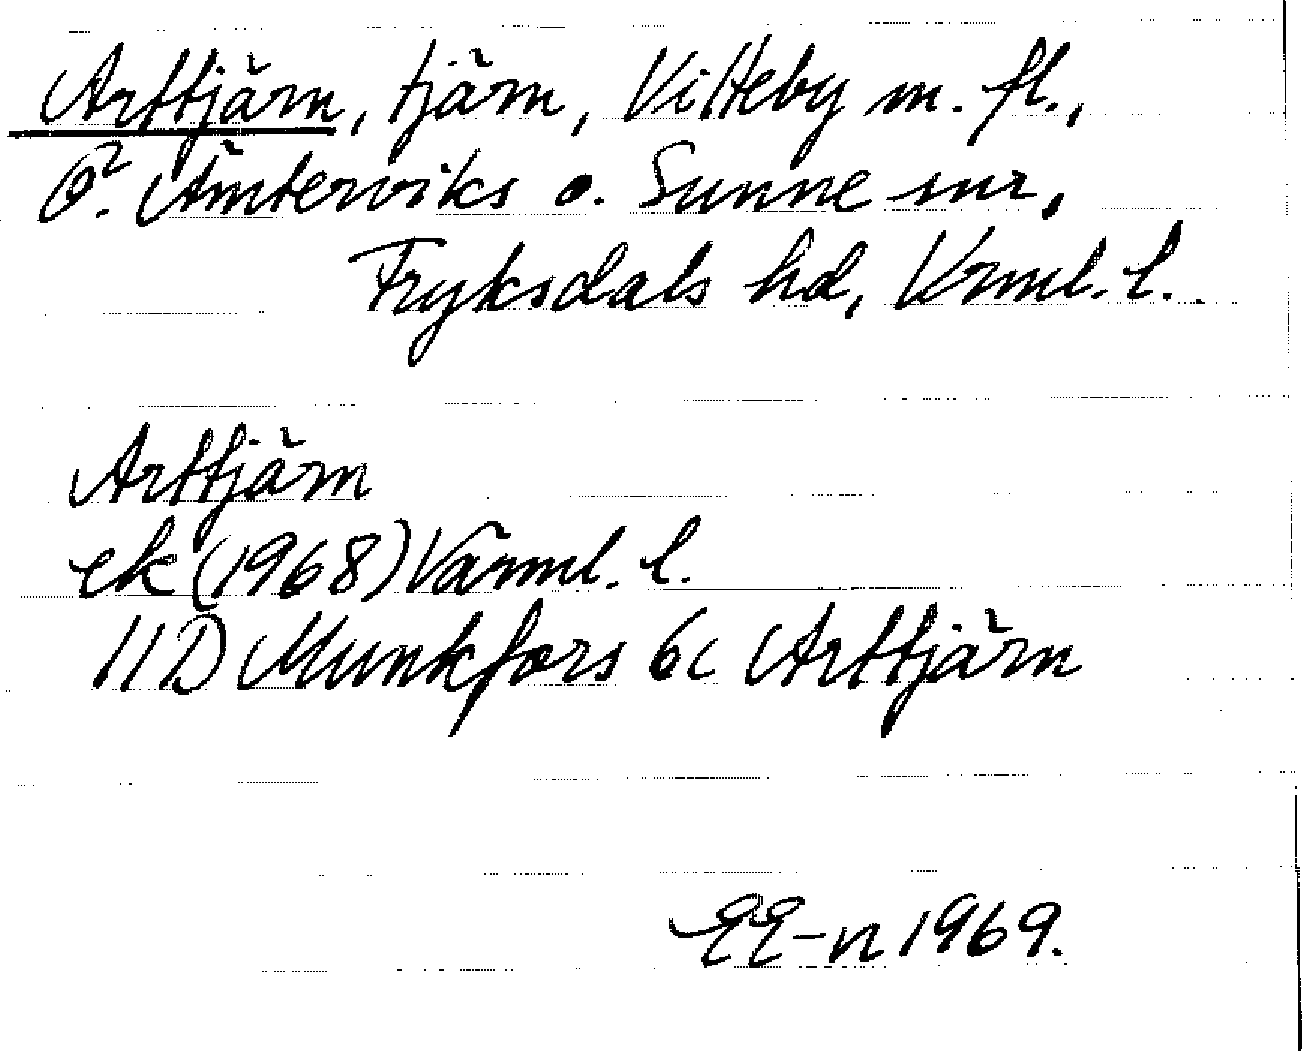 Arttjärn, tjärn, Vitteby m. fl.,
Ö. Ämterviks o. Sunne snr,
Fryksdals hd, Vrml. l.
Arttjärn
ek (1968) Värml. l.
11D Munkfors 6c Arttjärn
EE-n 1969.